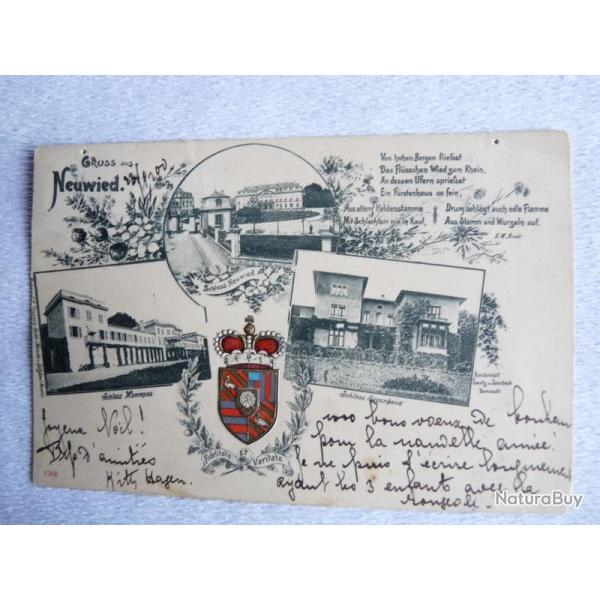 Gruss aus
Neuwied.
Von hohen Bergen fliesset
Das Flüsschen Wied zum Rhein,
An dessen Ufern spriesset
Ein Fürstenhaus so fein,
Aus altem Heldenstamme
Mit Schlachten nie in Kauf,
Drum schlägt auch edle Flamme
Aus Stamm und Wurzeln auf.
E. M. Arndt
Schloss Neuwied.
Schloss Monrepos.
Schloss Segenhaus
Kunstanstalt
Darmstadt
Fidelitate et Veritate
Joyeux Noël!
Bcp d'amitiés
Kitty Hagen.
vos bons voeux de bonheur
pour la nouvelle année.
Je ne puis d'écrire longuement
ayant les 3 enfants avec la
rougeole.
NaturaBuy